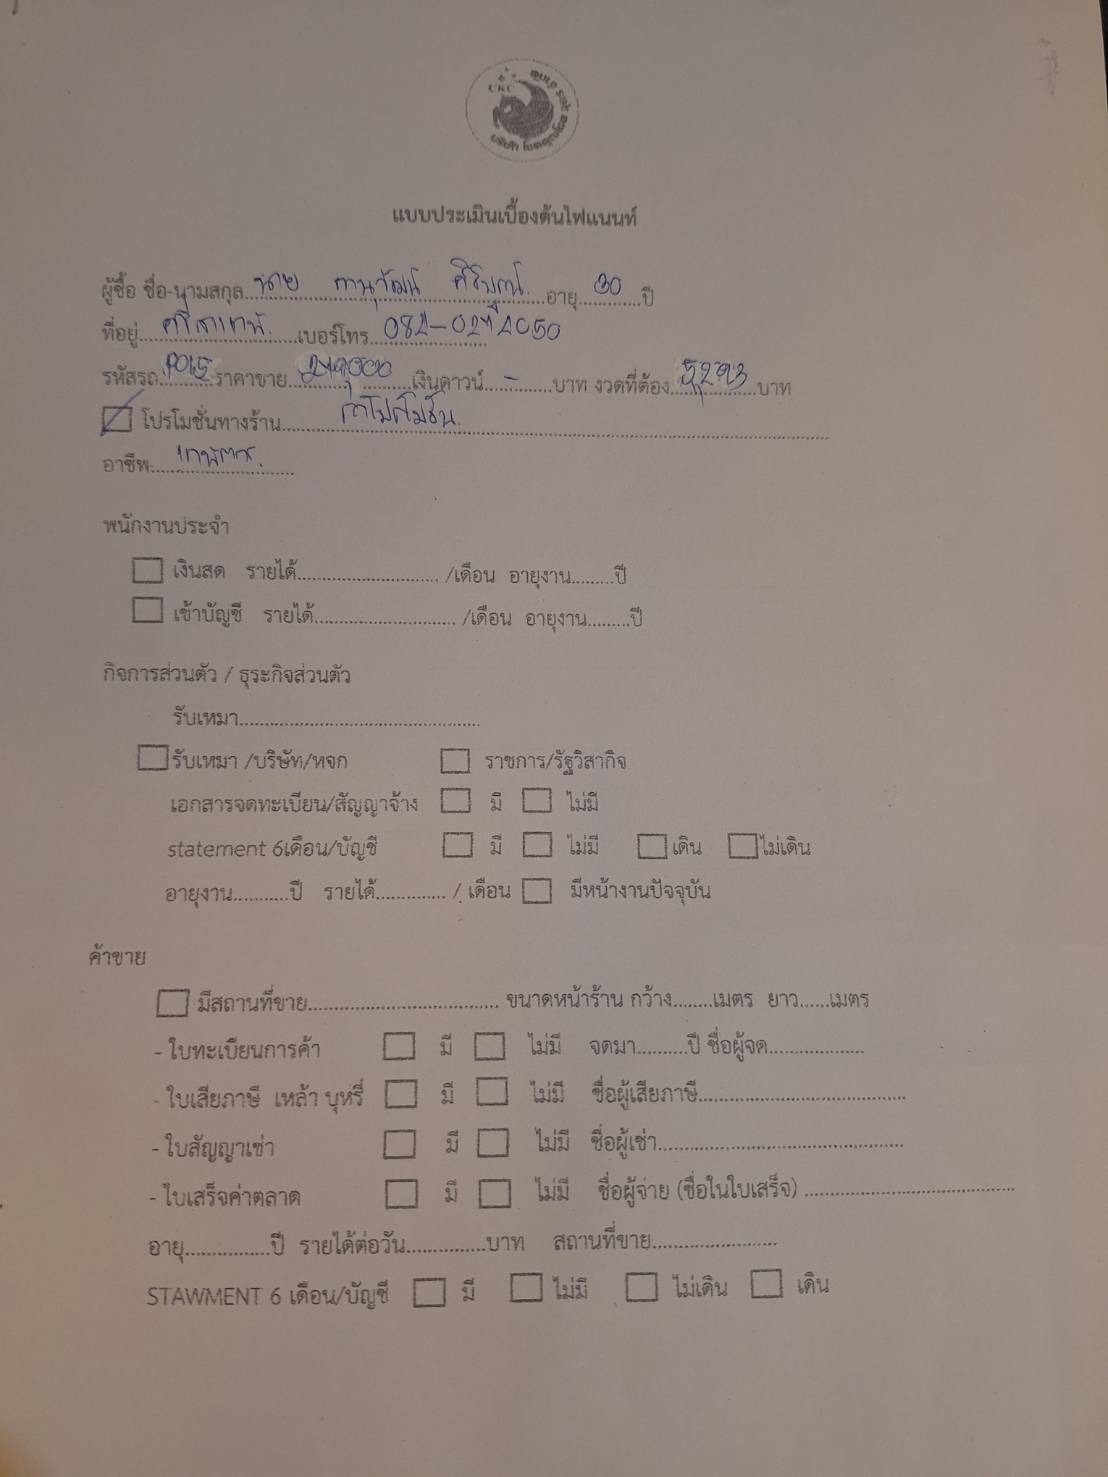 CKC
แบบประเมินเบื้องต้นไฟแนนท์
ผู้ซื้อ ชื่อ-นามสกุล..นาย ภานุวัฒน์ ศิริบูรณ์..อายุ..30..ปี
ที่อยู่..ศรีสาเทพ..เบอร์โทร..082-0272050
รหัสรถ..P015..ราคาขาย..279,000..เงินดาวน์..-..บาท งวดที่ต้อง..5,293..บาท
โปรโมชั่นทางร้าน
อาชีพ..เกษตร.
พนักงานประจำ
เงินสด รายได้........../เดือน อายุงาน.........ปี
เข้าบัญชี รายได้........../เดือน อายุงาน.........ปี
กิจการส่วนตัว / ธุระกิจส่วนตัว
รับเหมา..........
รับเหมา /บริษัท/หจก ราชการ/รัฐวิสากิจ
เอกสารจดทะเบียน/สัญญาจ้าง มี ไม่มี
statement 6เดือน/บัญชี มี ไม่มี เดิน ไม่เดิน
อายุงาน...........ปี รายได้.............. / เดือน มีหน้างานปัจจุบัน
ค้าขาย
มีสถานที่ขาย.......... ขนาดหน้าร้าน กว้าง........เมตร ยาว......เมตร
- ใบทะเบียนการค้า มี ไม่มี จดมา..........ปี ชื่อผู้จด...................
- ใบเสียภาษี เหล้า บุหรี่ มี ไม่มี ชื่อผู้เสียภาษี..........
- ใบสัญญาเช่า มี ไม่มี ชื่อผู้เช่า..........
- ใบเสร็จค่าตลาด มี ไม่มี ชื่อผู้จ่าย (ชื่อในใบเสร็จ) ..........
อายุ.................ปี รายได้ต่อวัน...............บาท สถานที่ขาย.......................
STAWMENT 6 เดือน/บัญชี มี ไม่มี ไม่เดิน เดิน